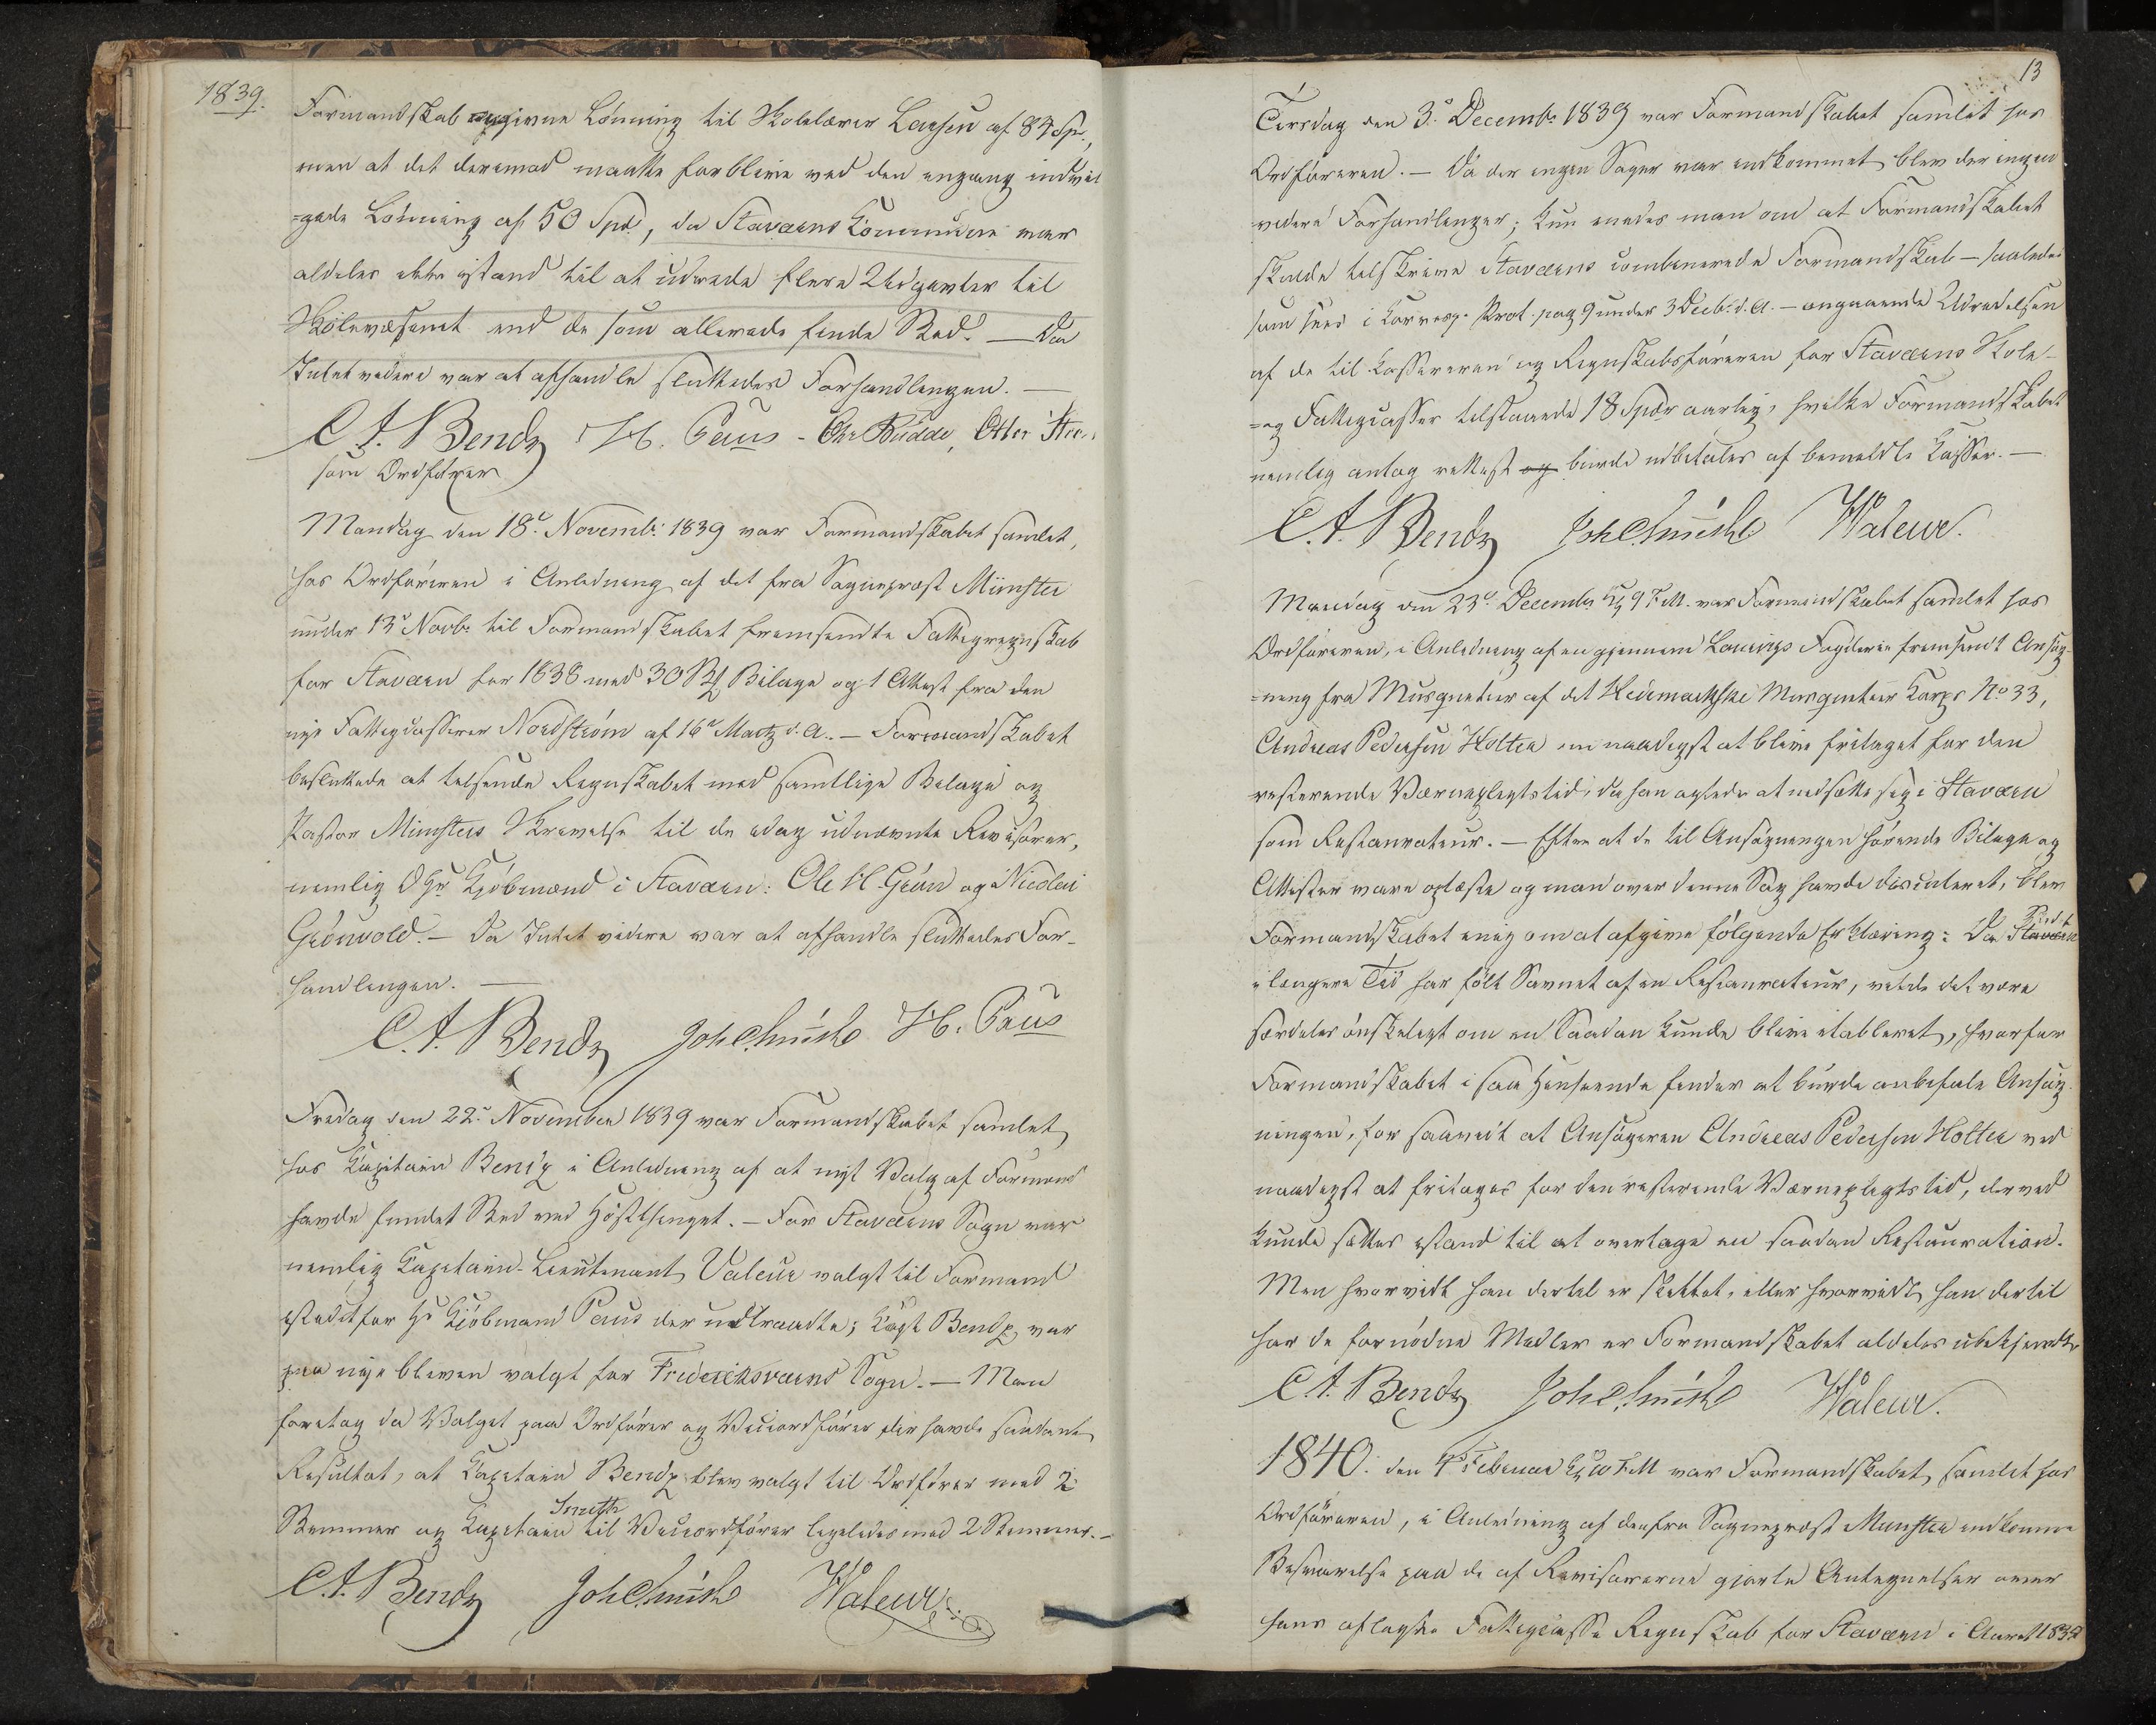 1839.
Formandskab opgivne Lønning til Skolelærer Larsen af 84 Sp,
men at det derimod maatte forblive ved den engang indvil
=gede Lønning af 50 Spd, da Staværns Kommune var
aldeles ikke istand til at udrede flere Udgivter til
Skolevæsenet end de som allerede finde Sted. — Da
Intet videre var at afhandle sluttedes Forhandlingen. —
C. A. Bendz H. Paus - Chr Budde, Otter
som Ordfører
Mandag den 18de Novembr 1839 var Formandskabet samlet,
hos Ordføreren i Anledning af det fra Sogneprest Münster
under 13de Novbr til Formandskabet fremsendte Fattigregnskab
for Staværn for 1838 med 30 Bilage og 1 Attest fra den
nye Fattigcasserer Nordstrøm af 16de Martz d. A. — Formandskabet
besluttede at tilsende Regnskabet med samtlige Bilage og
Pastor Münsters Skrivelse til de idag udnævnte Revisorer,
nemlig Hr Kjøbmænd i Staværn: Ole H. Grün og Nicolai
Grønvold. — Da Intet videre var at afhandle sluttedes For-
handlingen. —
C. A. Bendz Joh Smith H. Paus
Fredag den 22de November 1839 var Formandskabet samlet
hos Kapitain Bendz i Anledning af at nyt Valg af Formænd
havde fundet Sted ved Høstthinget. — For Staværns Sogn var
nemlig Kapitain-Lieutenant Valeur valgt til Formand
istedetfor Hr Kjøbmand Paus der udtraadte; Capt Bendz var
paa nye bleven valgt for Frideriksværns Sogn. — Man
foretog da Valget paa Ordfører og Viceordfører der havde saadant
Resultat, at Kapitain Bendz blev valgt til Ordfører med 2
Smith
Stemmer og Kapitain til Viceordfører ligeledes med 2 Stemmer. —
C. A. Bendz Joh Smith Valeur
13
Tirsdag den 3de Decembr 1839 var Formandskabet samlet hos
Ordføreren. — Da der ingen Sager var indkommet blev der ingen
videre Forhandlinger; kun enedes man om at Formandskabet
skulde tilskrive Staværns combinerede Formandskab — saaledes
som sees i Corresp. Prot. pag 9 under 3 Decbr d. A. — angaaende Udredelsen
af de til Kassereren og Regnskabsføreren for Staværns Skole-
=og Fattigcasser tilstaaede 18 Spdr aarlig, hvilke Formandskabet
nemlig antog rettest og burde udbetales af bemeldte Kasser. —
C. A. Bendz Joh Smith Valeur.
Mandag den 23de Decembr Kl 9 F.M. var Formandskabet samlet hos
Ordføreren, i Anledning af en gjennem Laurvigs Fogderie fremsendt Ansøg-
=ning fra Musqueteer af det Hedemarkske Musqueteer Korps No 33,
Andreas Pedersen Holter om naadigst at blive fritaget for den
resterende Værnepligtstid, da han agtede at nedsætte sig i Staværn
som Restaurateur. — Efter at de til Ansøgningen hørende Bilage og
Attester vare oplæste og man over denne Sag havde discuteret, blev
Formandskabet enig om at afgive følgende Erklæring: Da Staværn
i længere Tid har følt Savnet af en Restaurateur, vilde det være
særdeles ønskeligt om en Saadan kunde blive etableret, hvorfor
Formandskabet i saa Henseende finder at burde anbefale Ansøg-
ningen, for saavidt at Ansøgeren Andreas Pedersen Holter ved
naadigst at fritages for den resterende Værnepligtstid, derved
kunde sættes istand til at overtage en saadan Restauration.
Men hvorvidt han dertil er skikket, eller hvorvidt han dertil
har de fornødne Midler er Formandskabet aldeles ubekjendt.
C. A. Bendz Joh Smith Valeur.
1840. den 4de Februar Kl 10 F.M var Formandskabet samlet hos
Ordføreren, i Anledning af den fra Sogneprest Munster indkomne
Besvarelse paa de af Revisorerne gjorte Antegnelser over
hans aflagte Fattigcasse Regnskab for Staværn i Aaret 1838